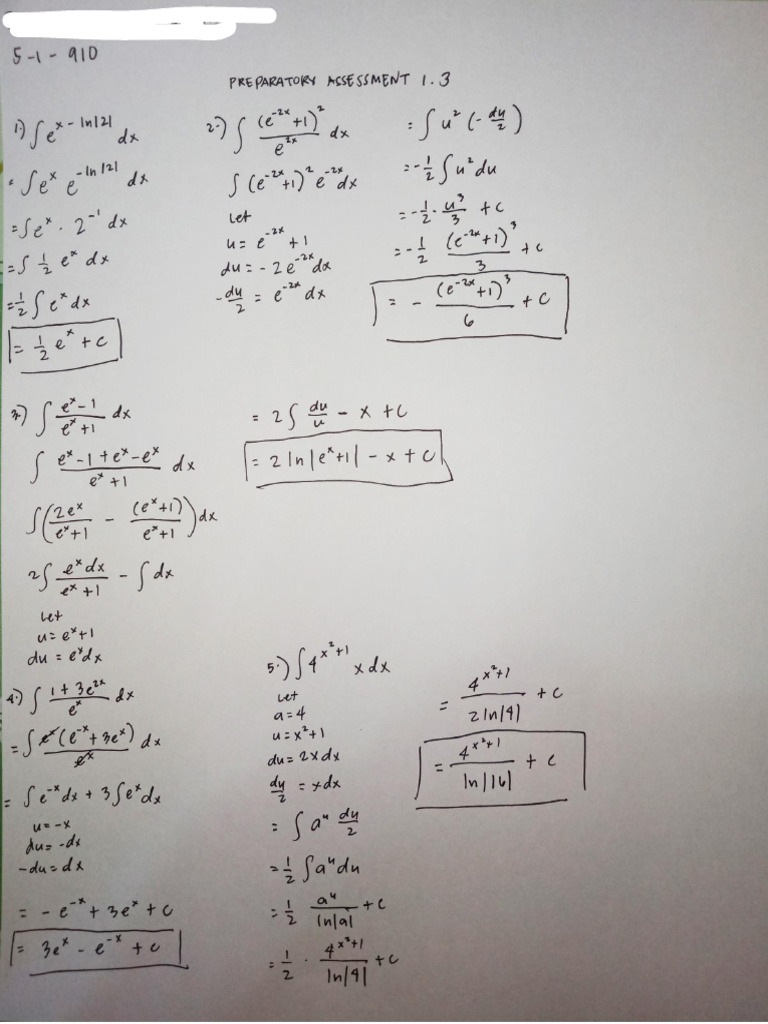 5-1-910
PREPARATORY ASSESSMENT 1.3
1.) ∫ e^(x - ln|2|) dx
= ∫ e^x e^(-ln|2|) dx
= ∫ e^x · 2^(-1) dx
= ∫ 1/2 e^x dx
= 1/2 ∫ e^x dx
= 1/2 e^x + C
2.) ∫ (e^(-2x) + 1)^2 / e^(2x) dx
∫ (e^(-2x) + 1)^2 e^(-2x) dx
Let
u = e^(-2x) + 1
du = -2e^(-2x) dx
-du/2 = e^(-2x) dx
= ∫ u^2 (-du/2)
= -1/2 ∫ u^2 du
= -1/2 · u^3/3 + C
= -1/2 (e^(-2x) + 1)^3 / 3 + C
= - (e^(-2x) + 1)^3 / 6 + C
3.) ∫ (e^x - 1)/(e^x + 1) dx
∫ (e^x - 1 + e^x - e^x)/(e^x + 1) dx
∫ (2e^x/(e^x + 1) - (e^x + 1)/(e^x + 1)) dx
2 ∫ e^x dx/(e^x + 1) - ∫ dx
Let
u = e^x + 1
du = e^x dx
= 2 ∫ du/u - x + C
= 2 ln|e^x + 1| - x + C
4.) ∫ (1 + 3e^(2x))/e^x dx
= ∫ e^x (e^(-x) + 3e^x)/e^x dx
= ∫ e^(-x) dx + 3 ∫ e^x dx
u = -x
du = -dx
-du = dx
= -e^(-x) + 3e^x + C
= 3e^x - e^(-x) + C
5.) ∫ 4^(x^2+1) x dx
Let
a = 4
u = x^2 + 1
du = 2x dx
du/2 = x dx
= ∫ a^u du/2
= 1/2 ∫ a^u du
= 1/2 a^u/ln|a| + C
= 1/2 · 4^(x^2+1)/ln|4| + C
= 4^(x^2+1)/2 ln|4| + C
= 4^(x^2+1)/ln|16| + C